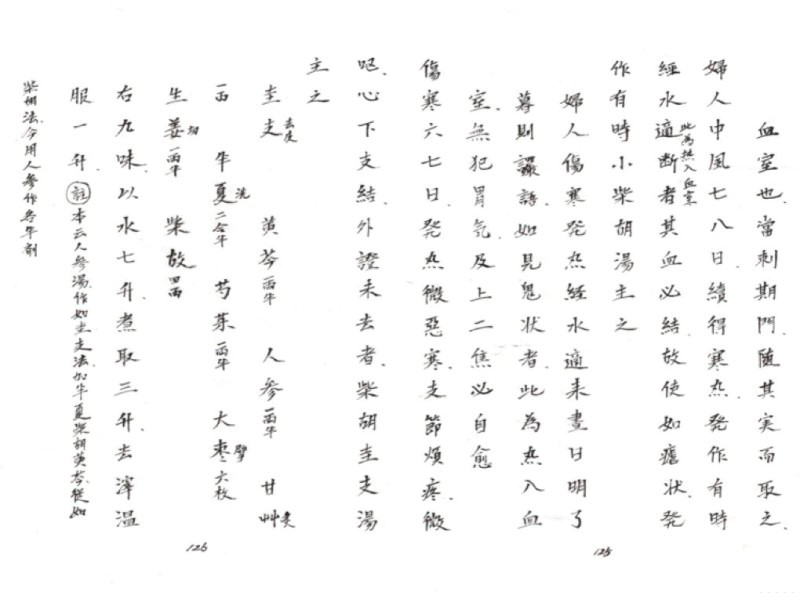 血室也當刺期門随其実而取之.
婦人中風七八日.續得寒热.発作有時
經水適断者此為热入血室其血必結故使如瘧状.発
作有時小柴胡湯主之
婦人傷寒発热經水適来晝日明了
暮則譫語.如見鬼状者.此為热入血
室.無犯胃気.及上二焦必自愈
125
傷寒六七日.発热微惡寒.支節煩疼.微
呕.心下支結.外證未去者.柴胡圭支湯
主之
圭支去皮 黄芩一両半 人参一両半 甘艸炙
一両 半夏洗二合半 芍薬一両半 大棗擘六枚
生姜切一両半 柴胡四両
右九味.以水七升.煮取三升.去滓温
服一升.註本云人参湯.作如圭支法.加半夏柴胡黄芩.復如
柴胡法.今用人参作各半剤
126